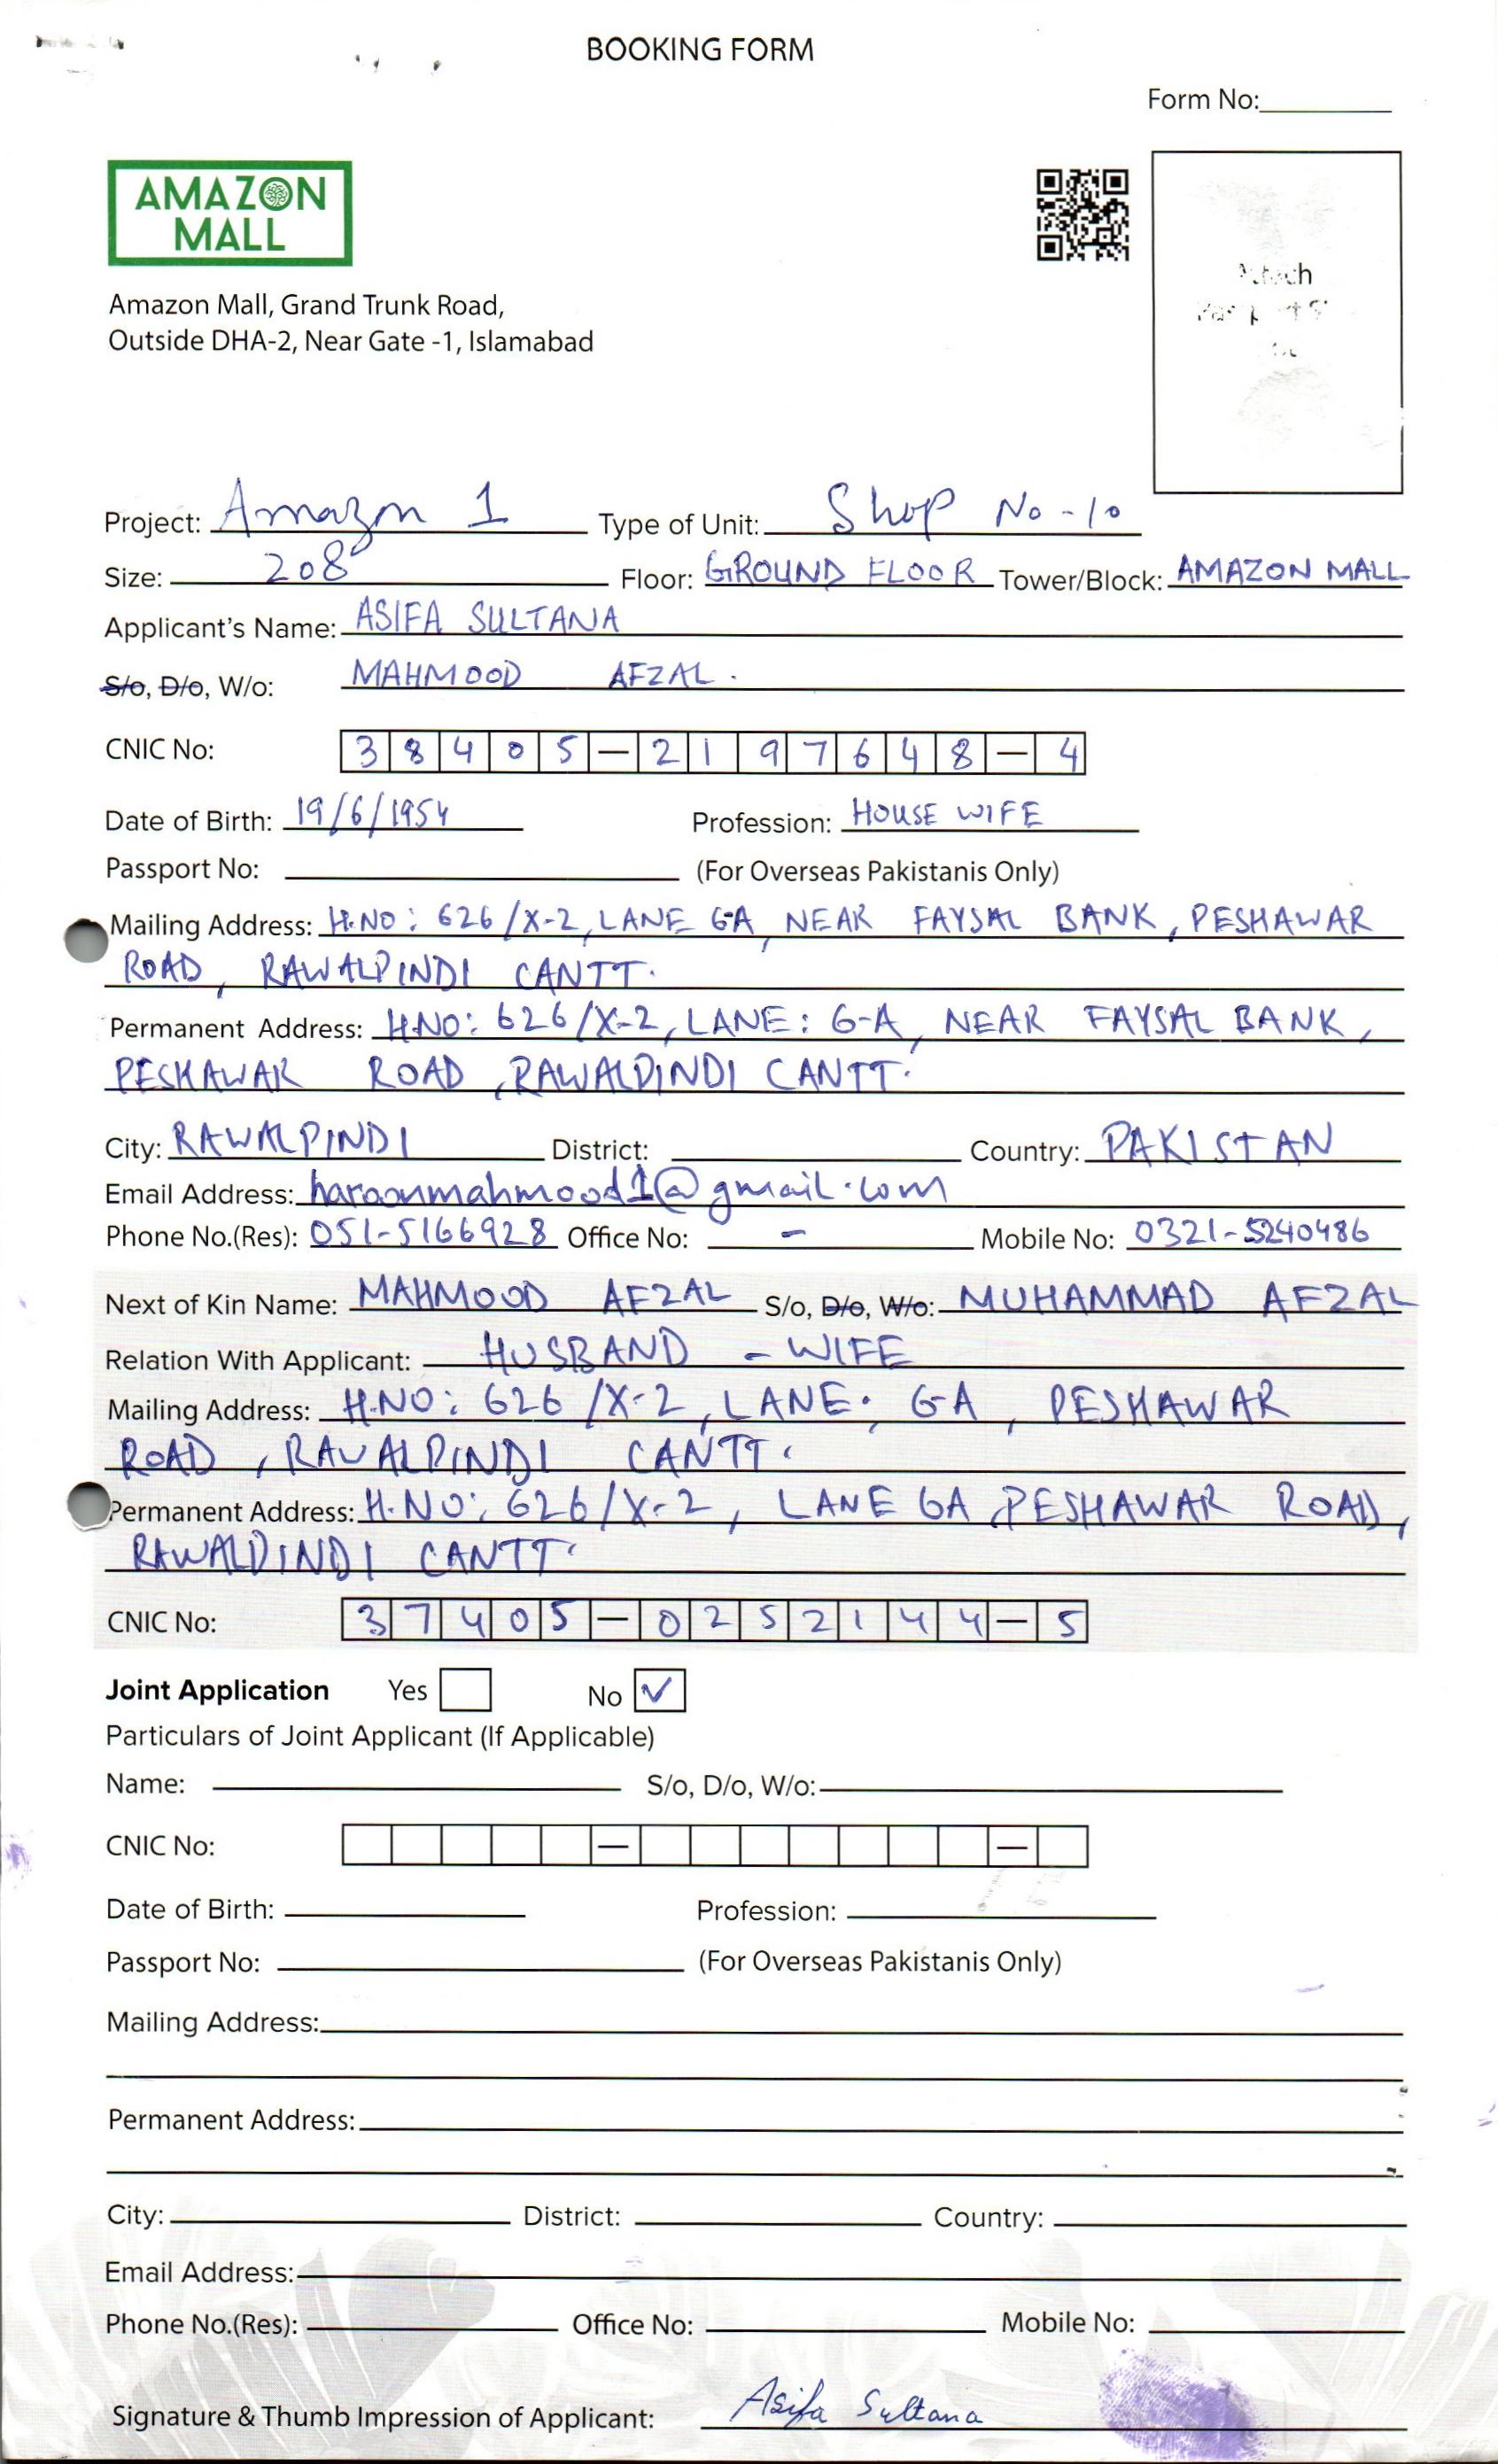 BOOKING FORM
Form No:
AMAZON
MALL
Amazon Mall, Grand Trunk Road,
Outside DHA-2, Near Gate -1, Islamabad
Attach
Project: Amazon 1 Type of Unit: Shop No-10
Size: 208 Floor: GROUND FLOOR Tower/Block: AMAZON MALL
Applicant's Name: ASIFA SULTANA
S/o, D/o, W/o: MAHMOOD AFZAL.
CNIC No: 38405-2197648-4
Date of Birth: 19/6/1954 Profession: HOUSE WIFE
Passport No: (For Overseas Pakistanis Only)
Mailing Address: H.NO: 626/X-2, LANE 6-A, NEAR FAYSAL BANK, PESHAWAR
ROAD, RAWALPINDI CANTT.
Permanent Address: H.NO: 626/X-2, LANE: 6-A, NEAR FAYSAL BANK,
PESHAWAR ROAD, RAWALPINDI CANTT.
City: RAWALPINDI District: Country: PAKISTAN
Email Address: haroonmahmood1@gmail.com
Phone No.(Res): 051-5166928 Office No: - Mobile No: 0321-5240486
Next of Kin Name: MAHMOOD AFZAL S/o, D/o, W/o: MUHAMMAD AFZAL
Relation With Applicant: HUSBAND - WIFE
Mailing Address: H.NO: 626/X-2, LANE: 6-A, PESHAWAR
ROAD, RAWALPINDI CANTT.
Permanent Address: H.NO: 626/X-2, LANE 6A, PESHAWAR ROAD,
RAWALPINDI CANTT.
CNIC No: 37405-0252144-5
Joint Application Yes No ✓
Particulars of Joint Applicant (If Applicable)
Name: S/o, D/o, W/o:
CNIC No: — —
Date of Birth: Profession:
Passport No: (For Overseas Pakistanis Only)
Mailing Address:
Permanent Address:
City: District: Country:
Email Address:
Phone No.(Res): Office No: Mobile No:
Signature & Thumb Impression of Applicant: Asifa Sultana